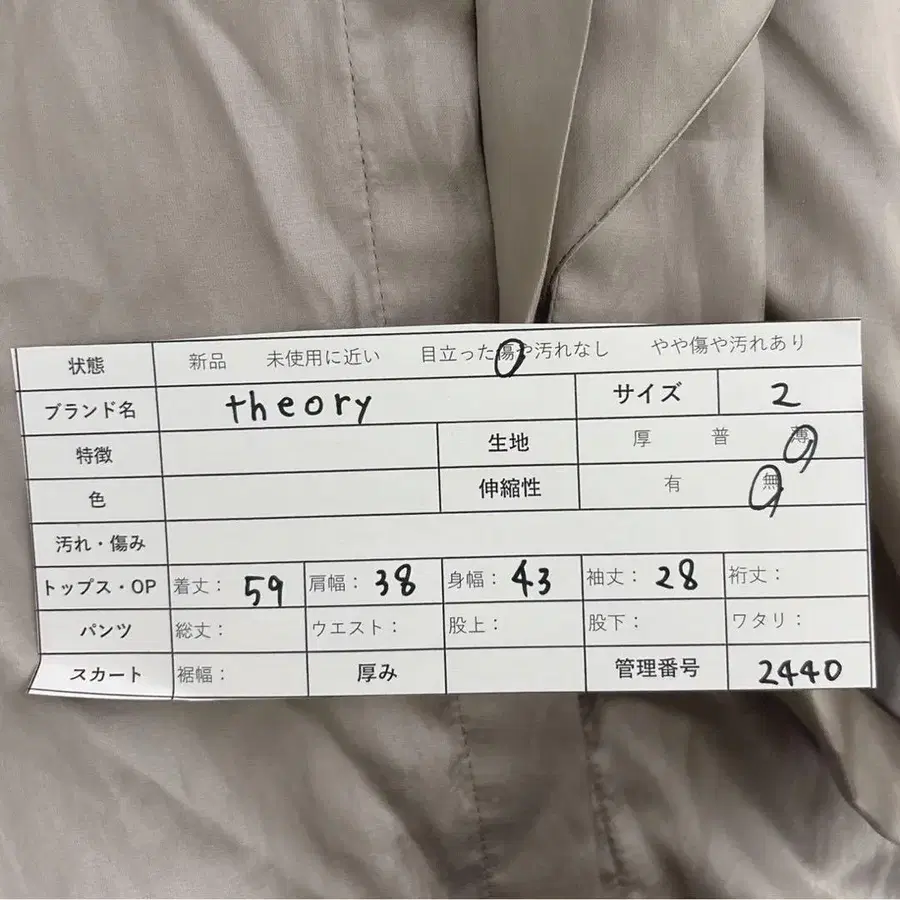 状態 新品 未使用に近い 目立った傷や汚れなし やや傷や汚れあり
ブランド名 theory サイズ 2
特徴 生地 厚 普 薄
色 伸縮性 有 無
汚れ・傷み
トップス・OP 着丈： 59 肩幅： 38 身幅： 43 袖丈： 28 裄丈：
パンツ 総丈： ウエスト： 股上： 股下： ワタリ：
スカート 裾幅： 厚み 管理番号 2440